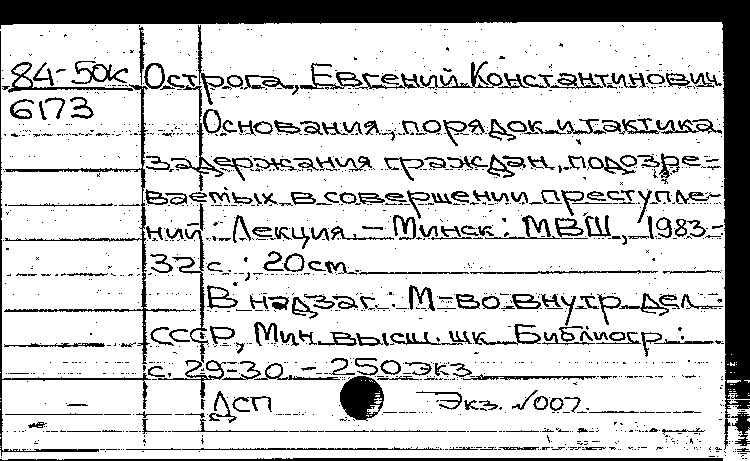 84-50к Острога, Евгений Константинович
6173
Основания, порядок и тактика
задержания граждан, подозре=
ваемых в совершении преступле-
ний : Лекция. - Минск : МВШ, 1983-
32 с. ; 20 см.
В надзаг. : М-во внутр. дел
СССР, Мин. высш. шк. Библиогр. :
с. 29-30. - 250 экз.
— ДСП Экз. №007.